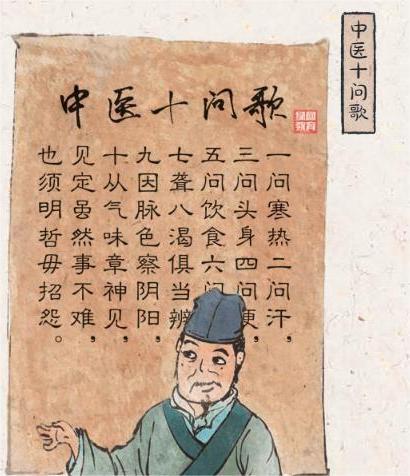 中医十问歌
中医十问歌
一问寒热二问汗，
三问头身四问便，
五问饮食六问
七聋八渴俱当辨
九因脉色察阴阳，
十从气味章神见，
见定虽然事不难，
也须明哲毋招怨。